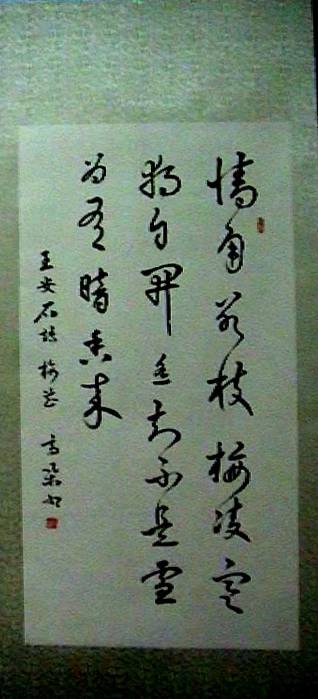 墙角数枝梅凌寒
独自開遥知不是雪
为有暗香来
王安石诗 梅花 高